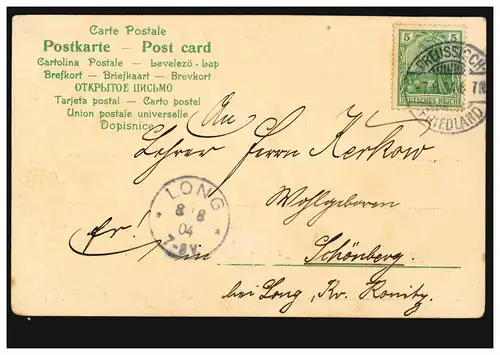 Carte Postale
Postkarte — Post card
Cartolina Postale — Levelező-Lap
Brefkort — Briefkaart — Brevkort
ОТКРЫТОЕ ПИСЬМО
Tarjeta postal — Carto postal
Union postale universelle
Dopisnice
5 5
DEUTSCHES REICH
PREUSSISCH-
FRIEDLAND
An
Herrn Kerkow
Wohlgeboren
LONG
8 8
04
7-8V.
in
Schönberg
bei Long, Kr. Konitz.